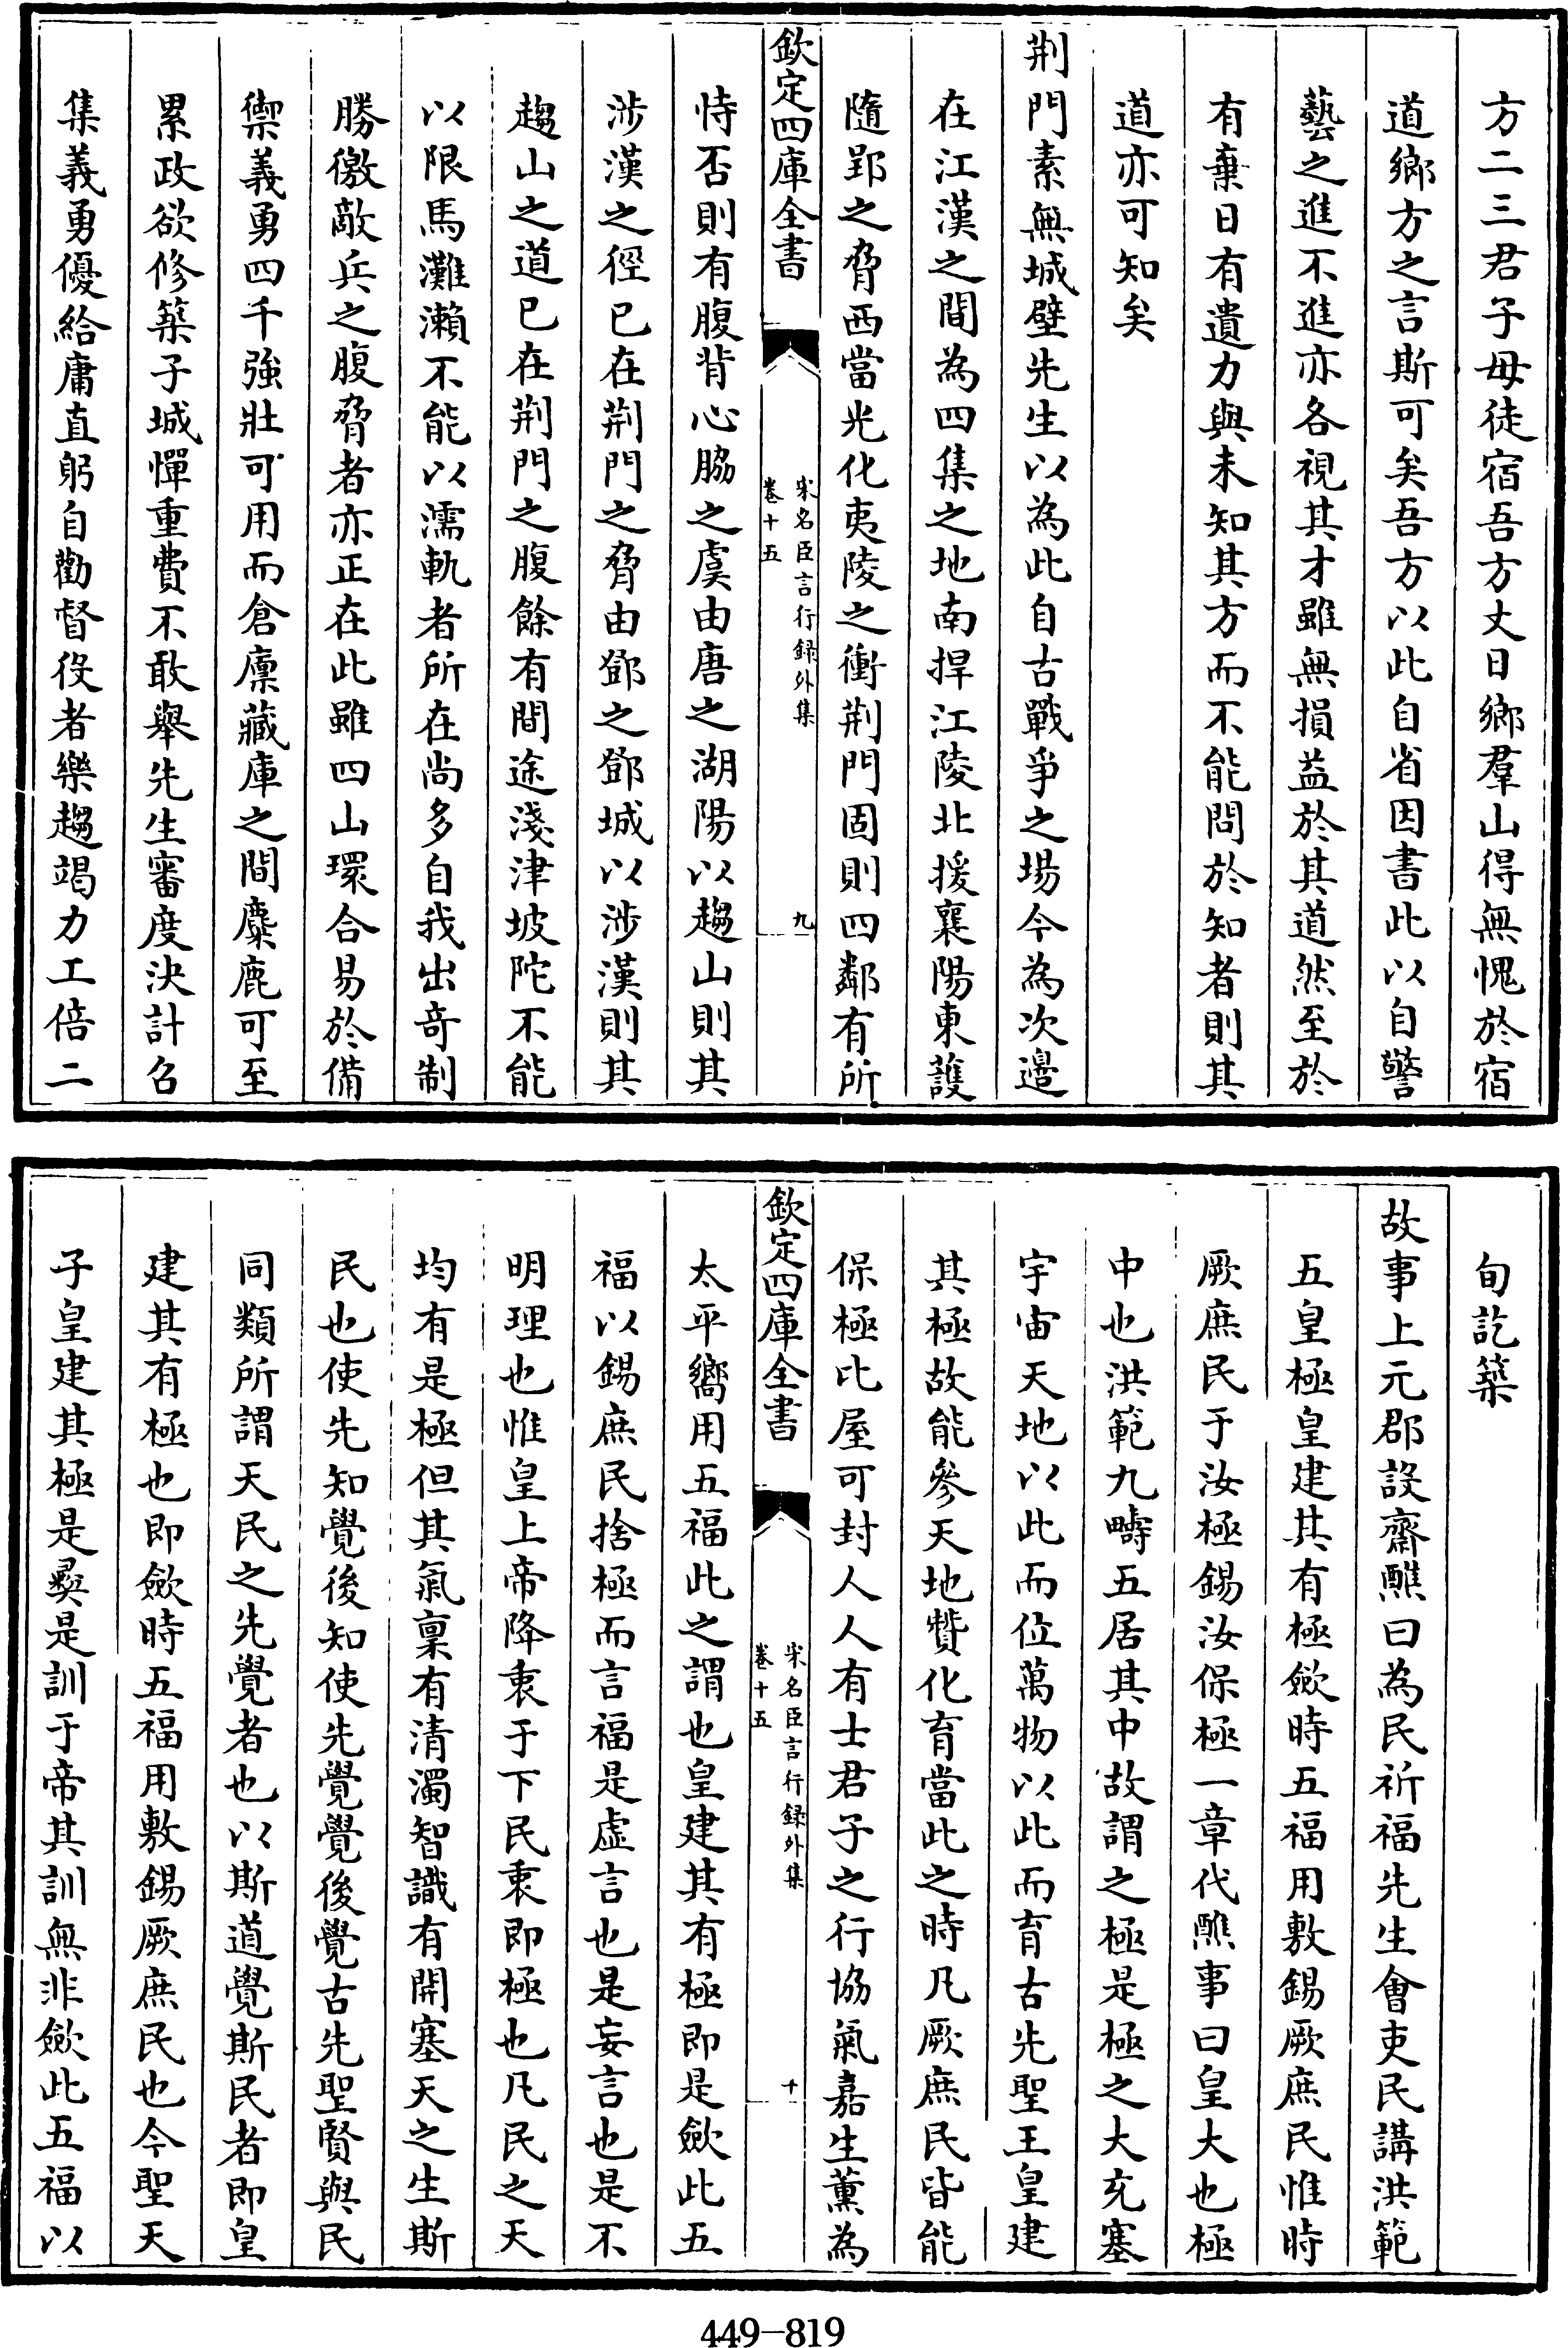 方二三君子毋徒宿吾方丈日鄉羣山得無愧於宿
道鄉方之言斯可矣吾方以此自省因書此以自警
藝之進不進亦各視其才雖無損益於其道然至於
有棄日有遺力與未知其方而不能問於知者則其
道亦可知矣
荆門素無城壁先生以為此自古戰爭之場今為次邉
在江漢之間為四集之地南捍江陵北援襄陽東護
隨郢之脅西當光化夷陵之衝荆門固則四鄰有所
欽定四庫全書
宋名臣言行録外集
卷十五
九
恃否則有腹背心脇之虞由唐之湖陽以趨山則其
涉漢之徑已在荆門之脅由鄧之鄧城以涉漢則其
趨山之道已在荆門之腹餘有間途淺津坡陀不能
以限馬灘瀨不能以濡軌者所在尚多自我出竒制
勝徼敵兵之腹脅者亦正在此雖四山環合易於備
禦義勇四千強壯可用而倉廩藏庫之間麋鹿可至
累政欲修築子城憚重費不敢舉先生審度決計召
集義勇優給庸直躬自勸督役者樂趨竭力工倍二
旬訖築
故事上元郡設齋醮曰為民祈福先生會吏民講洪範
五皇極皇建其有極歛時五福用敷錫厥庶民惟時
厥庶民于汝極錫汝保極一章代醮事曰皇大也極
中也洪範九疇五居其中故謂之極是極之大充塞
宇宙天地以此而位萬物以此而育古先聖王皇建
其極故能參天地贊化育當此之時凡厥庶民皆能
保極比屋可封人人有士君子之行協氣嘉生薰為
欽定四庫全書
宋名臣言行録外集
卷十五
十
太平嚮用五福此之謂也皇建其有極即是歛此五
福以錫庶民捨極而言福是虛言也是妄言也是不
明理也惟皇上帝降衷于下民衷即極也凡民之天
均有是極但其氣稟有清濁智識有開塞天之生斯
民也使先知覺後知使先覺覺後覺古先聖賢與民
同類所謂天民之先覺者也以斯道覺斯民者即皇
建其有極也即歛時五福用敷錫厥庶民也今聖天
子皇建其極是彛是訓于帝其訓無非歛此五福以
449-819